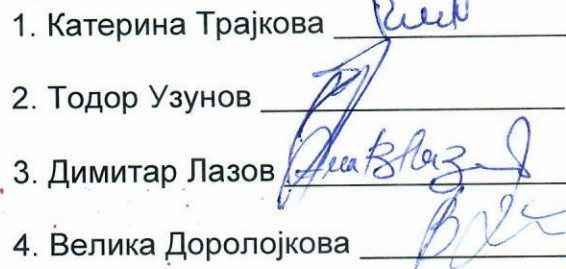 1. Катерина Трајкова
2. Тодор Узунов
3. Димитар Лазов
4. Велика Доролојкова